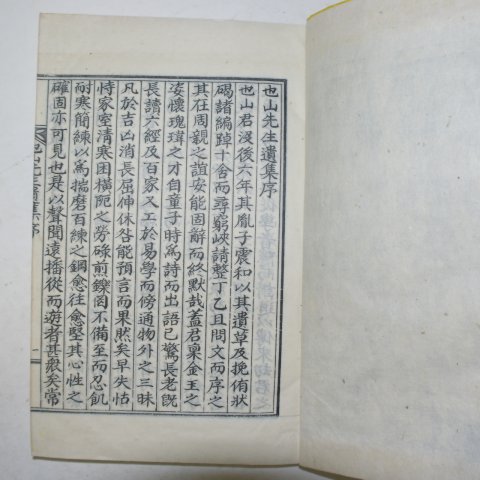 也山先生遺集序
也山君沒後六年其胤子震和以其遺草及挽侑狀
碣諸編踔十舍而尋窮峽請整丁乙且問文而序之
其在周親之誼安能固辭而終默哉蓋君稟金玉之
姿懷瑰瑋之才自童子時爲詩而出語已驚長老旣
長讀六經及百家又工於易學而傍通物外之三昧
凡於吉凶消長屈伸休咎能預言而果然矣早失怙
恃家室清寒困橫阨之勞碌前鏁罔不備至而忍飢
耐寒簡練以爲揣磨百練之鋼愈往愈堅其心性之
確固亦可見也是以聲聞遠播從而遊者甚衆矣常
也山先生遺集序
一